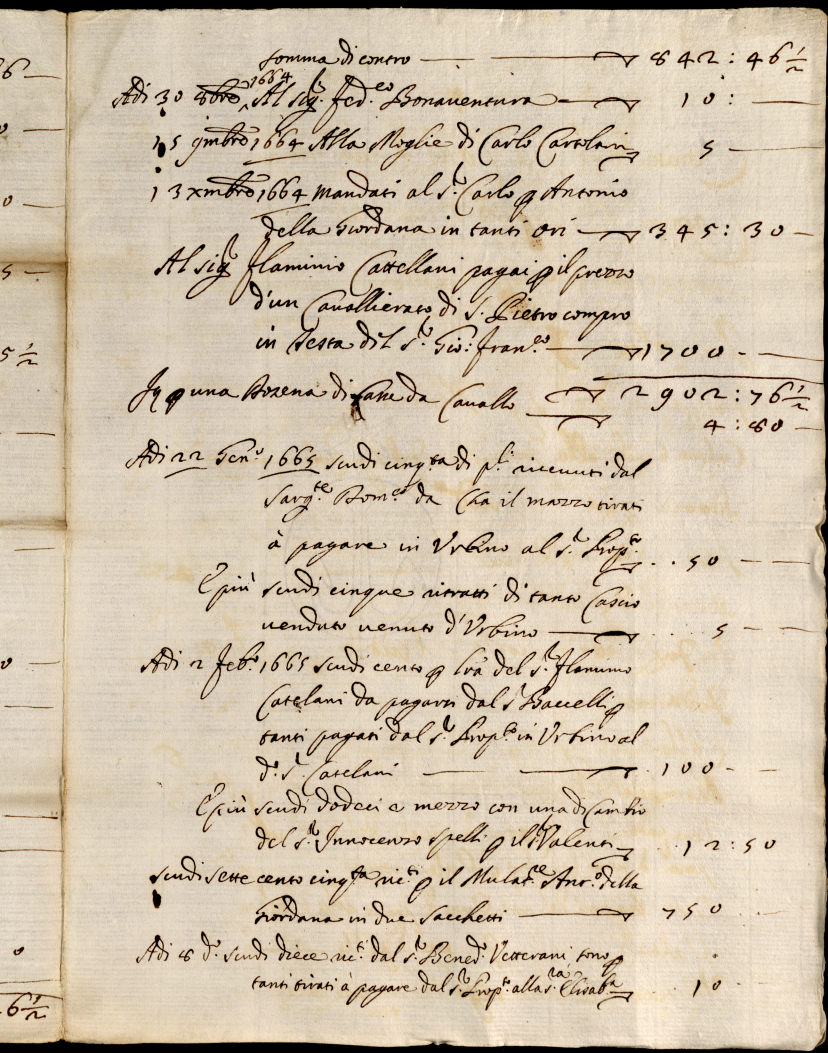 somma di contro — 842:46 1/2
Adi 30 8bre 1664 Al sigr. Fed.co Bonaventura — 10: —
15 9mbro 1664 Alla Moglie di Carlo Cartolari 5 —
13 xmbro 1664 mandati al s.r Carlo p Antonio
della Giordana in tanti ori — 345:30 —
Al sigr Flaminio Cattellani pagai p il prezzo
d'un Cavallierato di S. Pietro compro
in testa del s.r Gio: Fran.co — 1700 - —
p una di da Cavallo 2902:76 1/2
4:80 —
Adi 22 Gen.o 1665 scudi cinq.ta di p.li riceuuti dal
Sarg.te Rom.o da Cha il mazzo tirati
à pagare in Urbino al s.r Prop.to .. 50 - —
E più scudi cinque ritratti di tanto Cascio
uenduto uenuto d'Urbino — 5 - —
Adi 2 Feb.o 1665 scudi cento p lra del s.r Flaminio
Catelani da pagarsi dal s.r Baccelli p
tanti pagati dal s.r Prop.to in Urbino al
d.o s.r Catelani — — 100 - —
E più scudi dodeci e mezzo con una di Cambio
del s.r Innocenzo Spelli p il s.r Valenti .. 12:50
scudi sette cento cinq.ta ric.ti p il Mulat.re Ant.o della
Giordana in due sacchetti — 750 - —
Adi 8 d.o scudi diece ric.ti dal s.r Bened.o Vetterani, sono p
tanti tirati à pagare dal s.r Prop.to alla s.ra Elisab.a 10 -
5 1/2
6 1/2